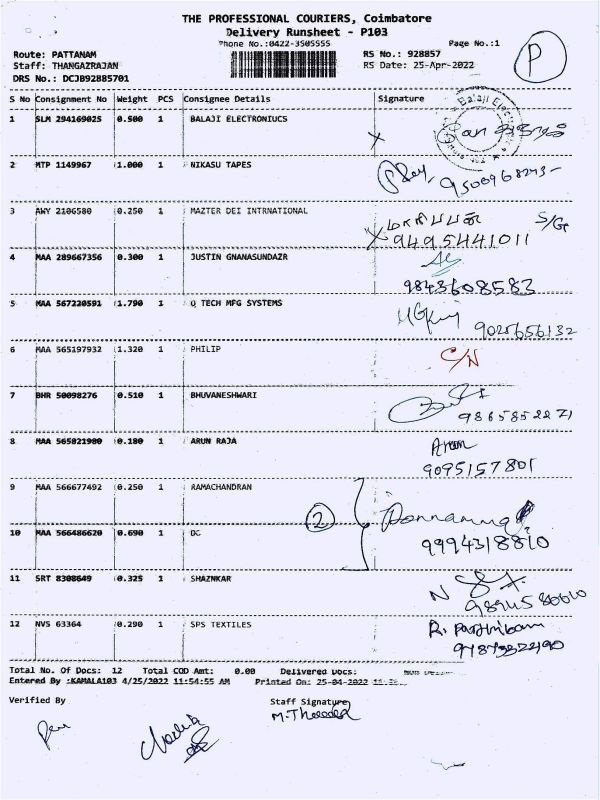 THE PROFESSIONAL COURIERS, Coimbatore
Delivery Runsheet - P103
Phone No.:0422-3505555 Page No.:1
P
Route: PATTANAM RS No.: 928857
Staff: THANGAZRAJAN RS Date: 25-Apr-2022
DRS No.: DCJB92885701
S No Consignment No Weight PCS Consignee Details Signature
1 SLM 294169025 0.500 1 BALAJI ELECTRONIUCS
Balaji Elect
2 MTP 1149967 1.000 1 NIKASU TAPES
3 AWY 2106580 0.250 1 MAZTER DEI INTRNATIONAL
S/G
9495441011
4 MAA 289667356 0.300 1 JUSTIN GNANASUNDAZR
9843608583
5 MAA 567220591 1.790 1 Q TECH MFG SYSTEMS
9025656132
6 MAA 565197932 1.320 1 PHILIP C/N
7 BHR 50098276 0.510 1 BHUVANESHWARI
8 MAA 565821980 0.180 1 ARUN RAJA Arun
9095157801
9 MAA 566677492 0.250 1 RAMACHANDRAN
2
10 MAA 566486620 0.690 1 DC
9994318810
11 SRT 8308649 0.325 1 SHAZNKAR
12 NVS 63364 0.290 1 SPS TEXTILES
Total No. Of Docs: 12 Total COD Amt: 0.00 Delivered Docs:
Entered By :KAMALA103 4/25/2022 11:54:55 AM Printed On: 25-04-2022
Verified By Staff Signature